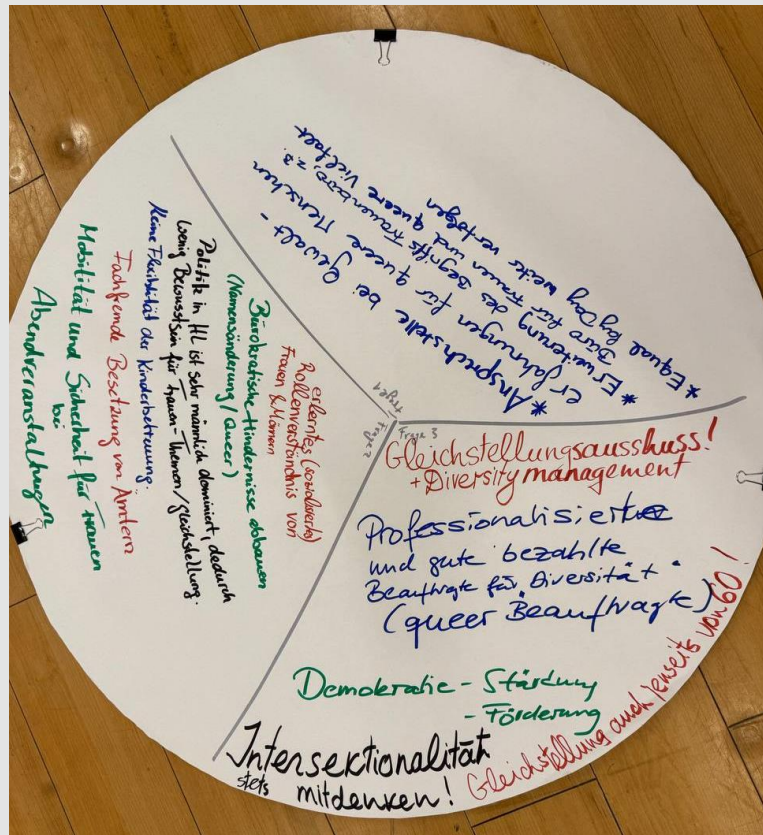 Frage 1
*Ansprechstelle bei Gewalt-
erfahrungen für queere Menschen
*Erweiterung des Begriffs Frauenbüro, z.B.
Büro für Frauen und queere Vielfalt
*Equal Pay Day weiter verfolgen
Frage 2
erlerntes (sozialisiertes)
Rollenverständnis von
Frauen & Männern
Bürokratische Hindernisse abbauen
(Namensänderung / Queer)
Politik in HL ist sehr männlich dominiert, dadurch
wenig Bewusstsein für Frauen-Themen/gleichstellung.
Keine Flexibilität der Kinderbetreuung.
Fachfremde Besetzung von Ämtern
Mobilität und Sicherheit für Frauen
bei
Abendveranstaltungen
Frage 3
Gleichstellungsausschuss!
+ Diversity management
Professionalisierte
und gute bezahlte
Beauftragte für Diversität
(queer Beauftragte)
Demokratie - Stärkung
- Förderung
Intersektionalität
stets mitdenken!
Gleichstellung auch jenseits von 60!